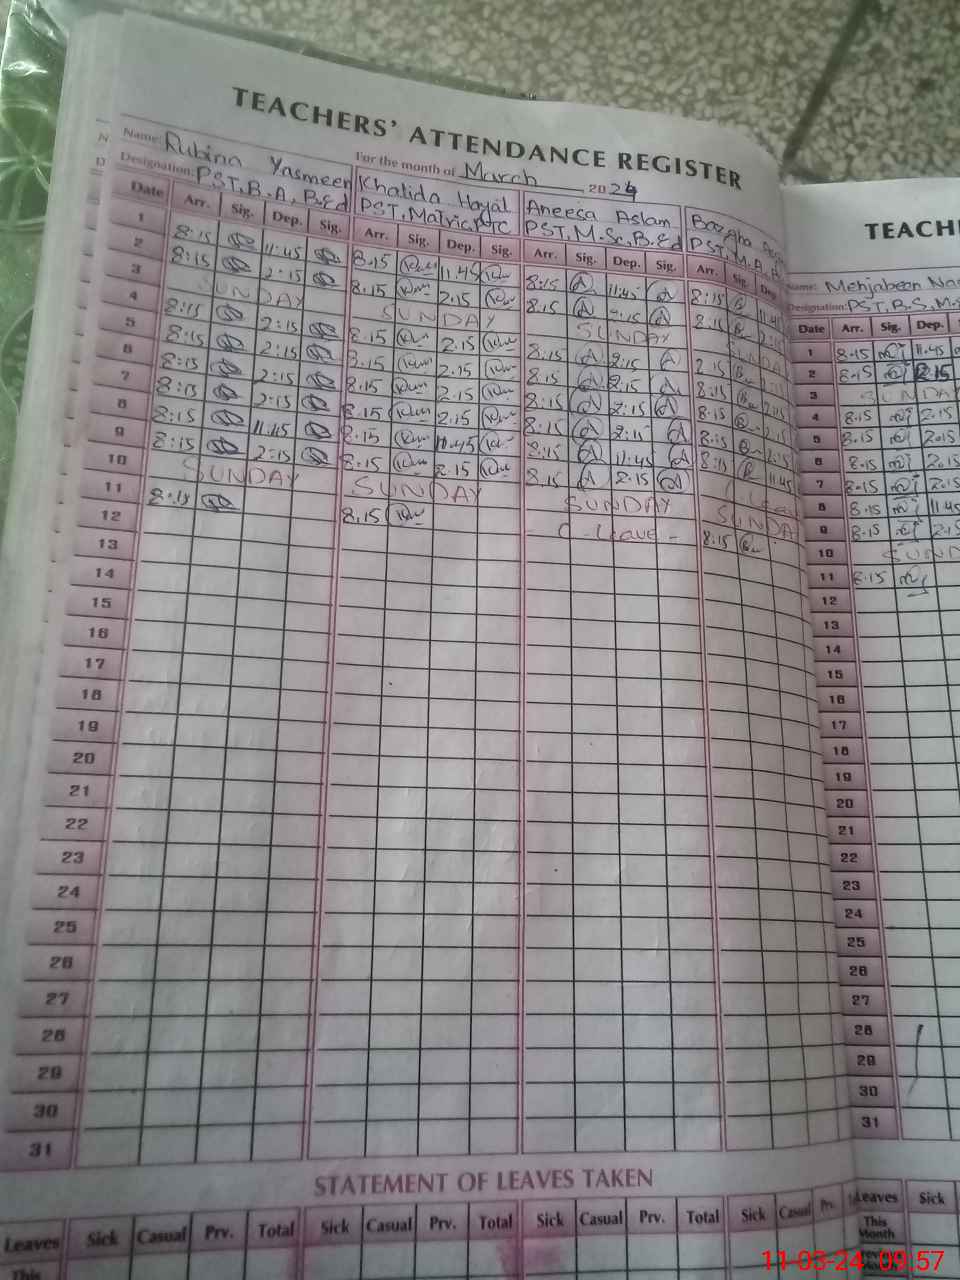 TEACHERS' ATTENDANCE REGISTER
Name: Rubina Yasmeen
For the month of March 2024
Designation: PST, B.A, B.Ed
Khalida Hayat
PST, Matric, PTC
Aneesa Aslam
PST, M.Sc, B.Ed
PST, M.A,
Date Arr. Sig. Dep. Sig. Arr. Sig. Dep. Sig. Arr. Sig. Dep. Sig. Arr. Sig. Dep.
1 8:15 11:45 8.15 11.45 8:15 11:45 8:15 11.45
2 8:15 2:15 8.15 2.15 8:15 2:15 8:15 2:15
3 SUNDAY SUNDAY SUNDAY SUNDAY
4 8:15 2:15 8.15 2.15 8:15 2:15 2:15
5 8:15 2:15 8.15 2.15 8:15 2:15 8:15 2:15
6 8:15 2:15 8.15 2.15 8:15 2:15 8:15 2:15
7 8:15 2:15 8.15 2.15 8:15 2:15 8:15 2:15
8 8:15 11:45 8.15 11.45 8:15 11:45 8:15 11.45
9 8:15 2:15 8.15 2.15 8:15 2:15 Leave
10 SUNDAY SUNDAY SUNDAY SUNDAY
11 8:15 8.15 C - Leave - 8:15
12
13
14
15
16
17
18
19
20
21
22
23
24
25
26
27
28
29
30
31
STATEMENT OF LEAVES TAKEN
Leaves Sick Casual Prv. Total Sick Casual Prv. Total Sick Casual Prv. Total Sick Casual Prv.
This
TEACHE
Name: Mehjabeen
Designation: PST, B.S,
Date Arr. Sig. Dep.
1 8.15 11.45
2 8.15 2.15
3 SUNDA
4 8.15 2.15
5 8.15 2.15
6 8.15 2.15
7 8.15 2.15
8 8.15 11.45
9 8.15 2.15
10 SUND
11 8.15
12
13
14
15
16
17
18
19
20
21
22
23
24
25
26
27
28
29
30
31
Leaves Sick
This
Month
11-03-24 09:57